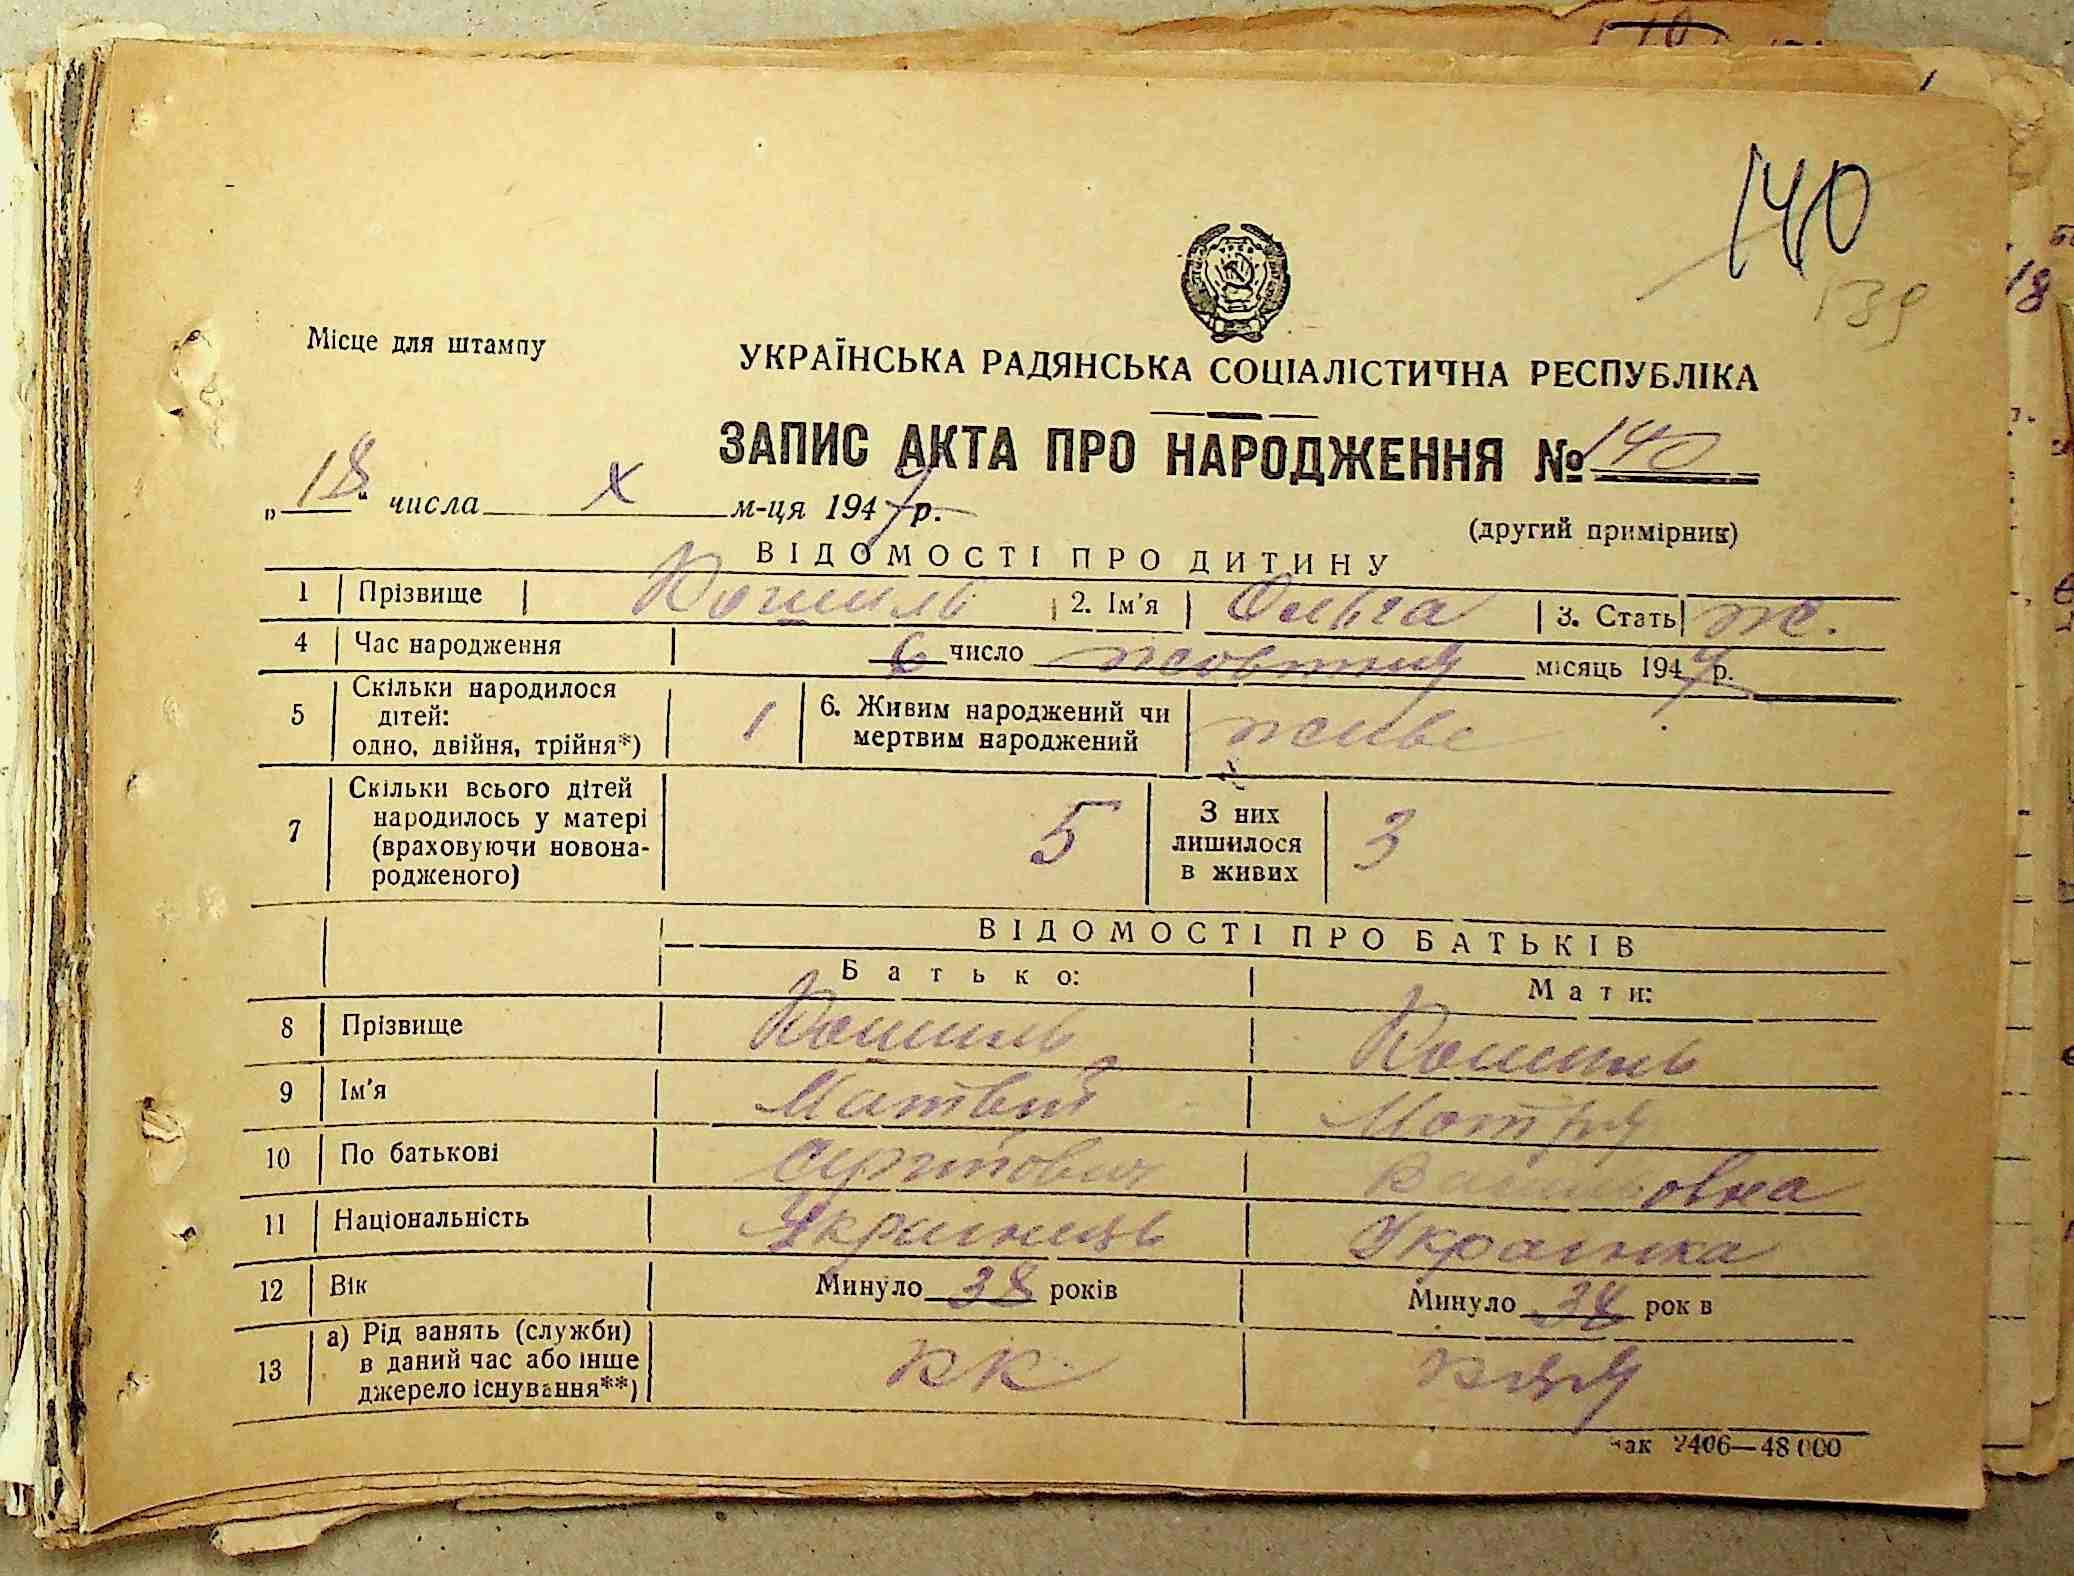 140
139
Місце для штампу
УКРАЇНСЬКА РАДЯНСЬКА СОЦІАЛІСТИЧНА РЕСПУБЛІКА
ЗАПИС АКТА ПРО НАРОДЖЕННЯ № 140
„18“ числа X м-ця 1947 р.
(другий примірник)
ВІДОМОСТІ ПРО ДИТИНУ
1 Прізвище Кошиль 2. Ім'я Ольга 3. Стать ж.
4 Час народження 6 число жовтня місяць 1947 р.
5 Скільки народилося дітей: одно, двійня, трійня*) 1 6. Живим народжений чи мертвим народжений живе
7 Скільки всього дітей народилось у матері (враховуючи новонародженого) 5 З них лишилося в живих 3
ВІДОМОСТІ ПРО БАТЬКІВ
Батько: Мати:
8 Прізвище Кошиль Кошиль
9 Ім'я Матвій Мотря
10 По батькові Василовна
11 Національність Українець Українка
12 Вік Минуло 38 років Минуло 34 рок в
13 а) Рід занять (служби) в даний час або інше джерело існування**) КК
зак 2406—48000